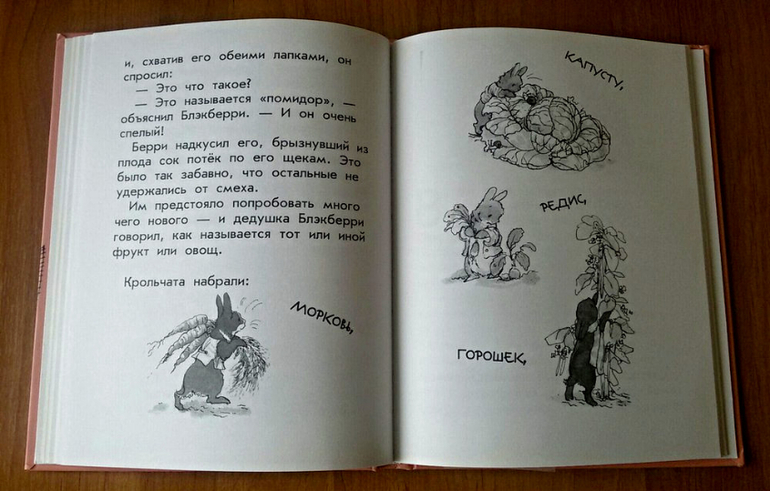 и, схватив его обеими лапками, он
спросил:
— Это что такое?
— Это называется «помидор», —
объяснил Блэкберри. — И он очень
спелый!
Берри надкусил его, брызнувший из
плода сок потёк по его щекам. Это
было так забавно, что остальные не
удержались от смеха.
Им предстояло попробовать много
чего нового — и дедушка Блэкберри
говорил, как называется тот или иной
фрукт или овощ.
Крольчата набрали:
МОРКОВЬ,
КАПУСТУ,
РЕДИС,
ГОРОШЕК,